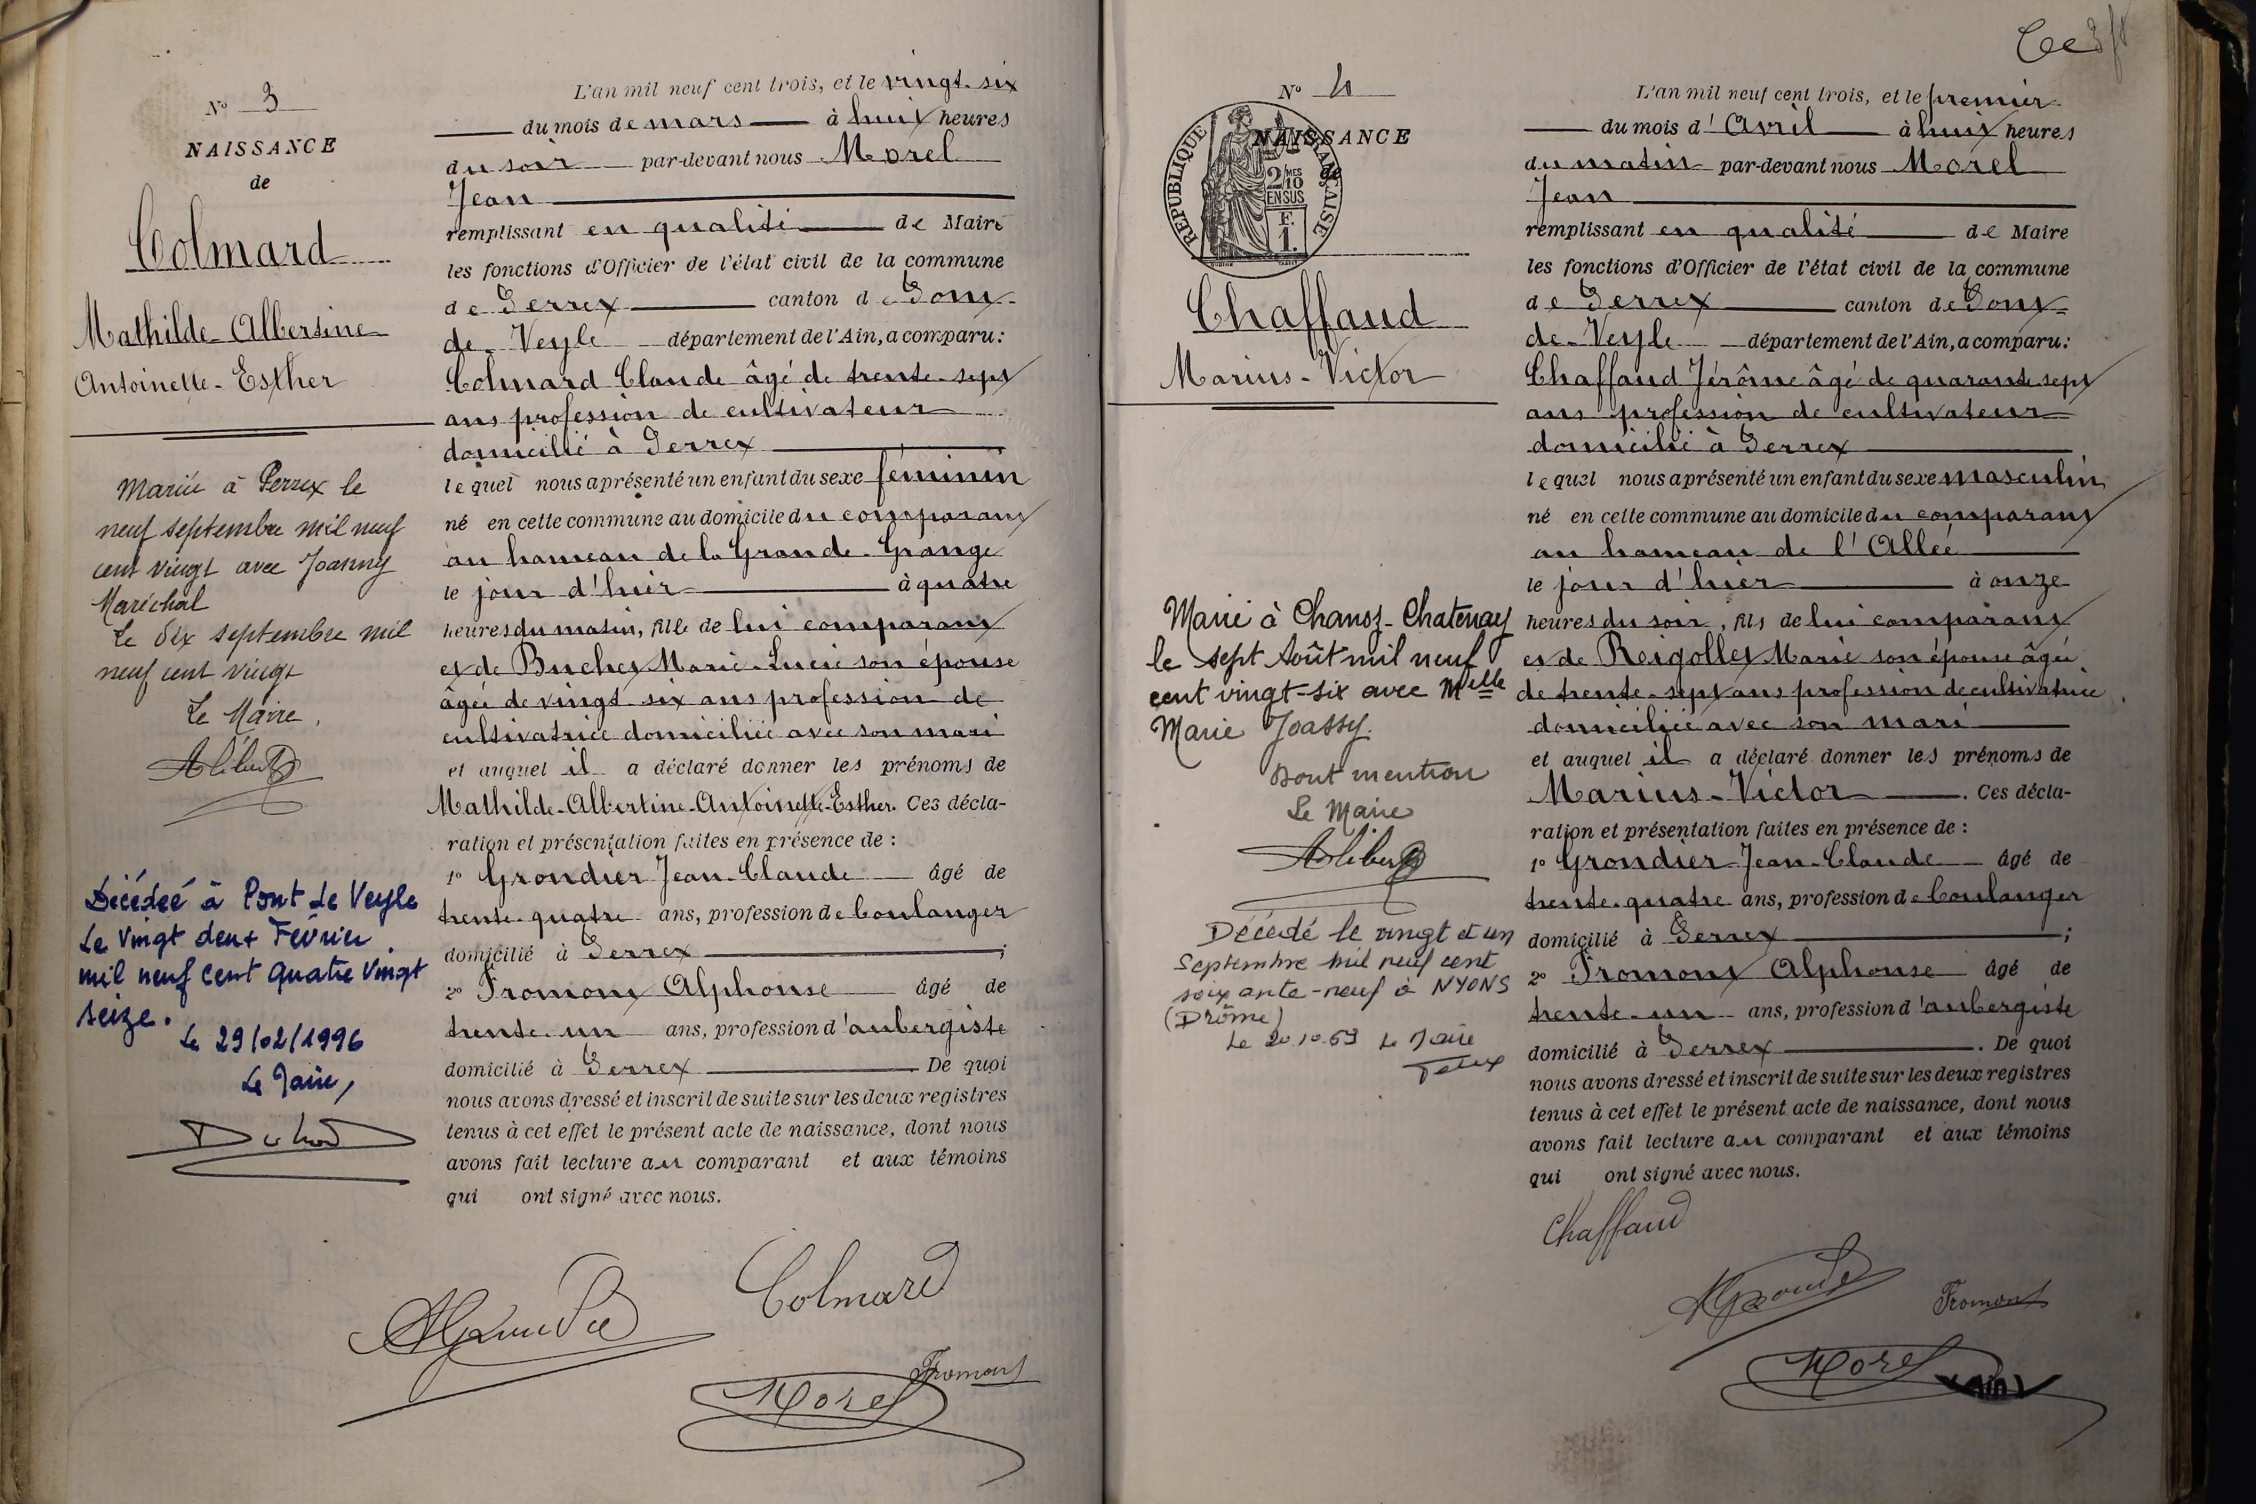 N° 3
NAISSANCE
de
Colmard
Mathilde-Albertine
Antoinette-Esther
Mariée à Perrex le
neuf septembre mil neuf
cent vingt avec Joanny
Maréchal
Le dix septembre mil
neuf cent vingt
Le Maire,
Décédée à Pont de Veyle
Le vingt deux Février
mil neuf cent quatre vingt
seize.
Le 29/02/1996
Le Maire,
L'an mil neuf cent trois, et le vingt-six
du mois de mars à huit heures
du soir par-devant nous Morel
Jean
remplissant en qualité de Maire
les fonctions d'Officier de l'état civil de la commune
de Perrex canton de Pont-
de-Veyle département de l'Ain, a comparu:
Colmard Claude âgé de trente-sept
ans profession de cultivateur
domicilié à Perrex
lequel nous a présenté un enfant du sexe féminin
né en cette commune au domicile du comparant
au hameau de la Grande-Grange
le jour d'hier à quatre
heures du matin, fille de lui comparant
et de Buchet Marie-Lucie son épouse
âgée de vingt-six ans profession de
cultivatrice domiciliée avec son mari
et auquel il a déclaré donner les prénoms de
Mathilde-Albertine-Antoinette-Esther. Ces décla-
ration et présentation faites en présence de :
1° Grondier Jean-Claude âgé de
trente-quatre ans, profession de boulanger
domicilié à Perrex ;
2° Fromont Alphonse âgé de
trente-un ans, profession d'aubergiste
domicilié à Perrex De quoi
nous avons dressé et inscrit de suite sur les deux registres
tenus à cet effet le présent acte de naissance, dont nous
avons fait lecture au comparant et aux témoins
qui ont signé avec nous.
Colmard
Fromont
Morel
N° 4
NAISSANCE
de
RÉPUBLIQUE FRANÇAISE
2/10 MES
EN SUS
F.
1.
Chaffaud
Marius-Victor
Marié à Chanoz-Chatenay
le sept Août mil neuf
cent vingt-six avec Melle
Marie Joassy.
Dont mention
Le Maire
Décédé le vingt et un
Septembre mil neuf cent
soixante-neuf à NYONS
(Drôme)
Le 20.10.69 Le Maire
L'an mil neuf cent trois, et le premier
du mois d'Avril à huit heures
du matin par-devant nous Morel
Jean
remplissant en qualité de Maire
les fonctions d'Officier de l'état civil de la commune
de Perrex canton de Pont-
de-Veyle département de l'Ain, a comparu:
Chaffaud Jérôme âgé de quarante-sept
ans profession de cultivateur
domicilié à Perrex
lequel nous a présenté un enfant du sexe masculin
né en cette commune au domicile du comparant
au hameau de l'Allée
le jour d'hier à onze
heures du soir, fils de lui comparant
et de Reigollet Marie son épouse âgée
de trente-sept ans profession de cultivatrice
domiciliée avec son mari
et auquel il a déclaré donner les prénoms de
Marius-Victor. Ces décla-
ration et présentation faites en présence de :
1° Grondier Jean-Claude âgé de
trente-quatre ans, profession de boulanger
domicilié à Perrex ;
2° Fromont Alphonse âgé de
trente-un ans, profession d'aubergiste
domicilié à Perrex . De quoi
nous avons dressé et inscrit de suite sur les deux registres
tenus à cet effet le présent acte de naissance, dont nous
avons fait lecture au comparant et aux témoins
qui ont signé avec nous.
Chaffaud
Fromont
Morel
(Ain)